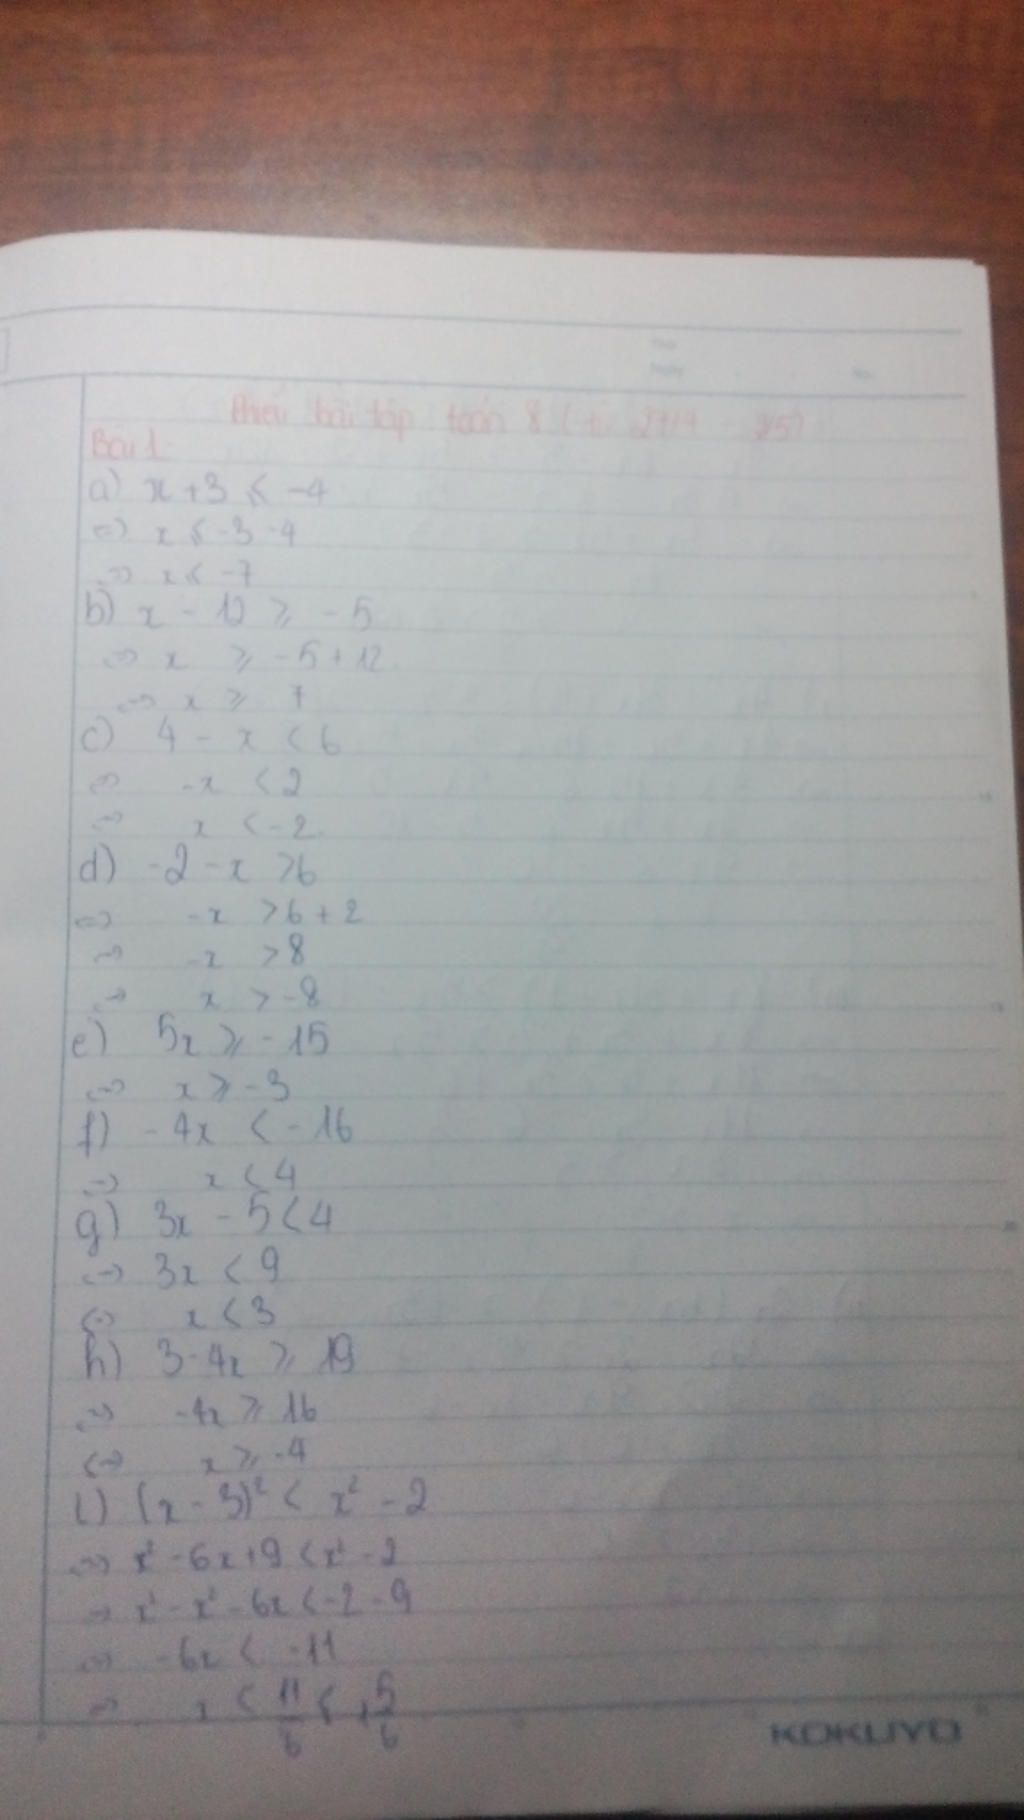 Phiếu bài tập toán 8 (từ 27/4 - 2/5)
Bài 1
a) x + 3 ≤ -4
⇔ x ≤ -3 - 4
⇔ x ≤ -7
b) x - 12 ≥ -5
⇔ x ≥ -5 + 12
⇔ x ≥ 7
c) 4 - x < 6
⇔ -x < 2
⇔ x < -2
d) -2 - x > 6
⇔ -x > 6 + 2
⇔ -x > 8
⇔ x > -8
e) 5x ≥ -15
⇔ x ≥ -3
f) -4x < -16
⇔ x < 4
g) 3x - 5 < 4
⇔ 3x < 9
⇔ x < 3
h) 3 - 4x ≥ 19
⇔ -4x ≥ 16
⇔ x ≥ -4
i) (x - 3)² < x² - 2
⇔ x² - 6x + 9 < x² - 2
⇔ x² - x² - 6x < -2 - 9
⇔ -6x < -11
⇔ x < 11/6
KOKUYO